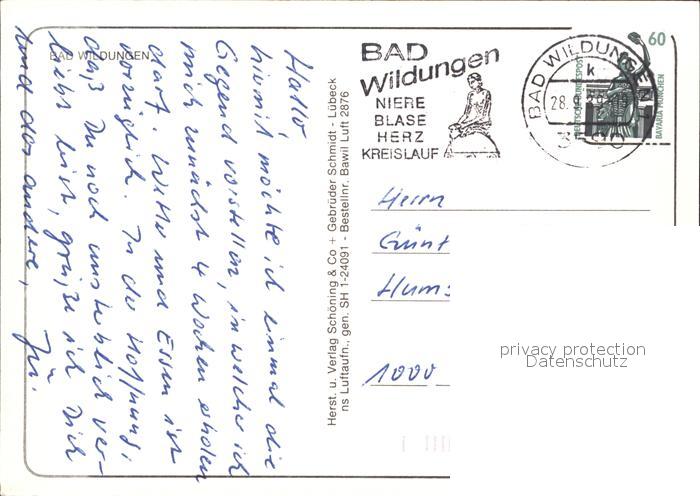 BAD WILDUNGEN
Hallo,
hiermit möchte ich einmal die
Gegend vorstellen, in welcher ich
mich zunächst 4 Wochen erholen
darf. Wetter und Essen ist
vorzüglich. In der Hoffnung,
daß Du noch unsterblich ver-
liebt bist, grüße ich Dich
und das andere,
Herst. u. Verlag Schöning & Co + Gebrüder Schmidt - Lübeck
ns Luftaufn., gen. SH 1-24091 - Bestellnr. Bawil Luft 2876
BAD
Wildungen
NIERE
BLASE
HERZ
KREISLAUF
BAD WILDUNGEN
k
28.
60
DEUTSCHE BUNDESPOST
BAVARIA MÜNCHEN
Herrn
Günt
Hum
1000
privacy protection
Datenschutz